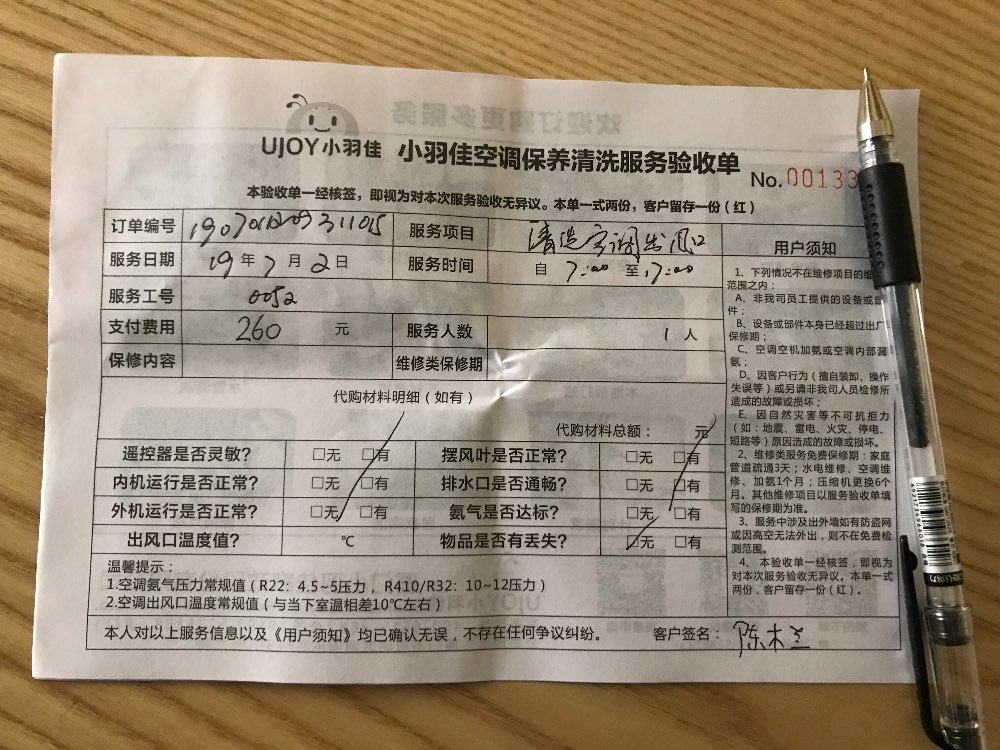 UJOY小羽佳 小羽佳空调保养清洗服务验收单
No.00133
本验收单一经核签，即视为对本次服务验收无异议。本单一式两份，客户留存一份（红）
订单编号 服务项目 清洗空调出风口
服务日期 19年7月2日 服务时间 自 7:00 至 17:00
服务工号 0052
支付费用 260 元 服务人数 1 人
保修内容 维修类保修期
代购材料明细（如有）
代购材料总额： 元
遥控器是否灵敏？ □无 □有 摆风叶是否正常？ □无 □有
内机运行是否正常？ □无 □有 排水口是否通畅？ □无 □有
外机运行是否正常？ □无 □有 氨气是否达标？ □无 □有
出风口温度值？ ℃ 物品是否有丢失？ □无 □有
温馨提示：
1.空调氨气压力常规值（R22：4.5~5压力，R410/R32：10~12压力）
2.空调出风口温度常规值（与当下室温相差10℃左右）
本人对以上服务信息以及《用户须知》均已确认无误，不存在任何争议纠纷。 客户签名： 陈木兰
用户须知
1、下列情况不在维修项目的
范围之内：
A、非我司员工提供的设备或
件；
B、设备或部件本身已经超过出厂
保修期；
C、空调空机加氨或空调内部漏
氨；
D、因客户行为（擅自装卸、操作
失误等）或另请非我司人员检修所
造成的故障或损坏；
E、因自然灾害等不可抗拒力
（如：地震、雷电、火灾、停电、
短路等）原因造成的故障或损坏。
2、维修类服务免费保修期：家庭
管道疏通3天；水电维修、空调维
修、加氨1个月；压缩机更换6个
月。其他维修项目以服务验收单填
写的保修期为准。
3、服务中涉及出外墙如有防盗网
或因高空无法外出，则不在免费检
测范围。
4、本验收单一经核签，即视为
对本次服务验收无异议。本单一式
两份，客户留存一份（红）。